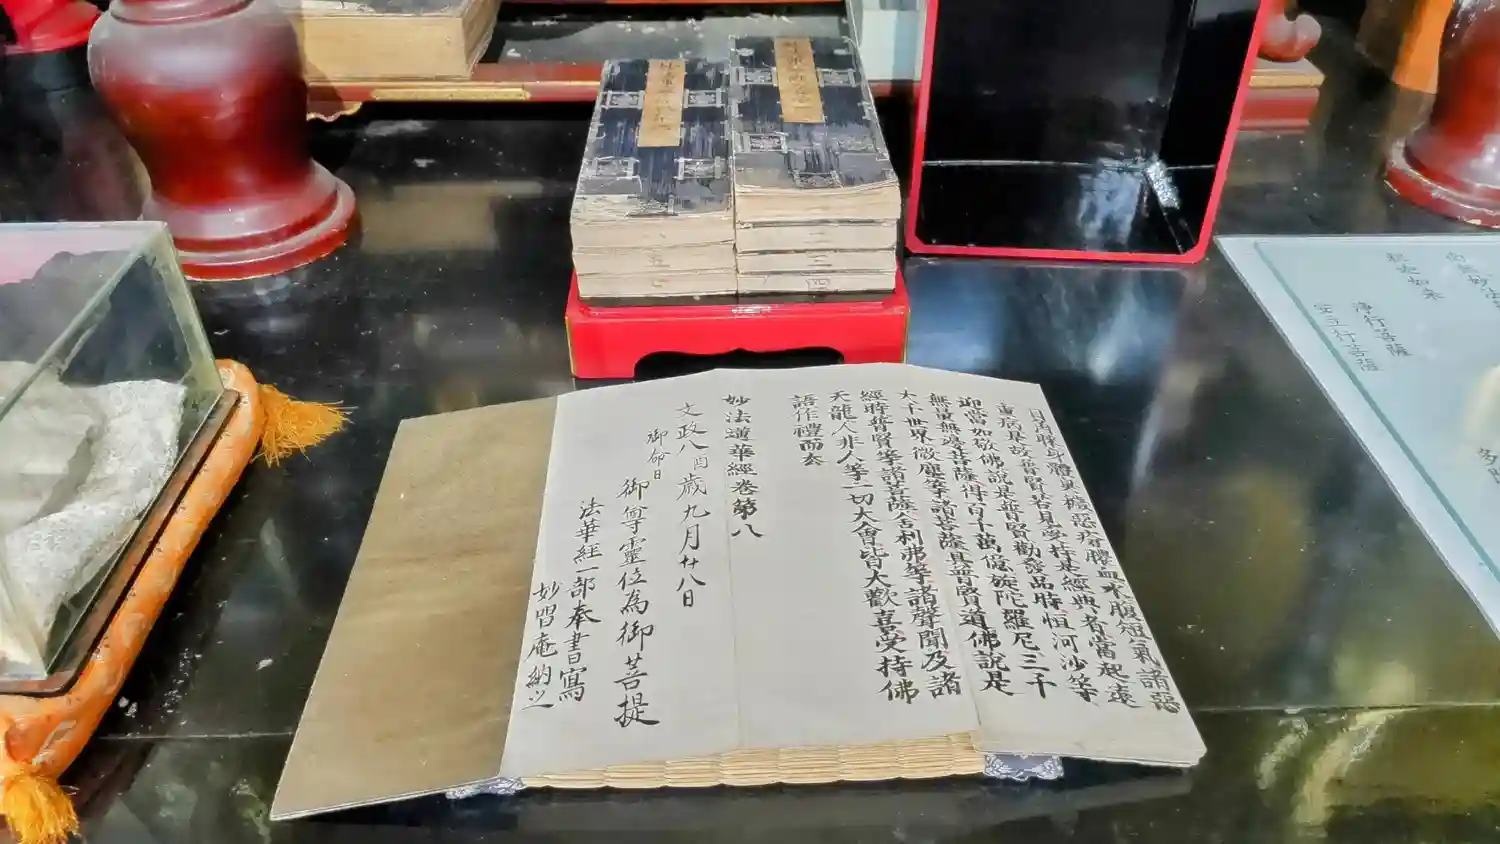 目角睞身體臭穢惡瘡膿血水腹短氣諸惡
重病是故普賢若見受持是經典者當起遠
迎當如敬佛說是普賢勸發品時恒河沙等
無量無邊菩薩得百千萬億旋陀羅尼三千
大千世界微塵等諸菩薩具普賢道佛說是
經時普賢等諸菩薩舍利弗等諸聲聞及諸
天龍人非人等一切大會皆大歡喜受持佛
語作禮而去
妙法蓮華經卷第八
文政八酉歲九月廿八日
御命日
御尊靈位為御菩提
法華經一部奉書寫
妙習庵納之
五
三
四
南無妙法
釈迦如来
浄行菩薩
安立行菩薩
多